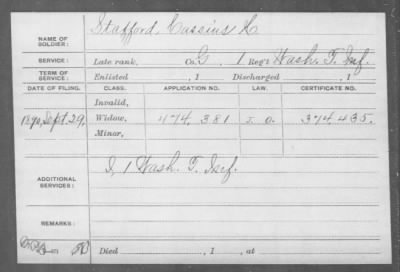 NAME OF SOLDIER: Stafford, Cassius
SERVICE: Late rank, Co. G, 1 Reg't Wash. T. Inf.
TERM OF SERVICE: Enlisted , 1 Discharged , 1
DATE OF FILING. CLASS. APPLICATION NO. LAW. CERTIFICATE NO.
Invalid,
1890, Sept. 29, Widow, 474,381 374,435.
Minor,
ADDITIONAL SERVICES: I, 1 Wash. T. Inf.
REMARKS:
Died , 1 , at